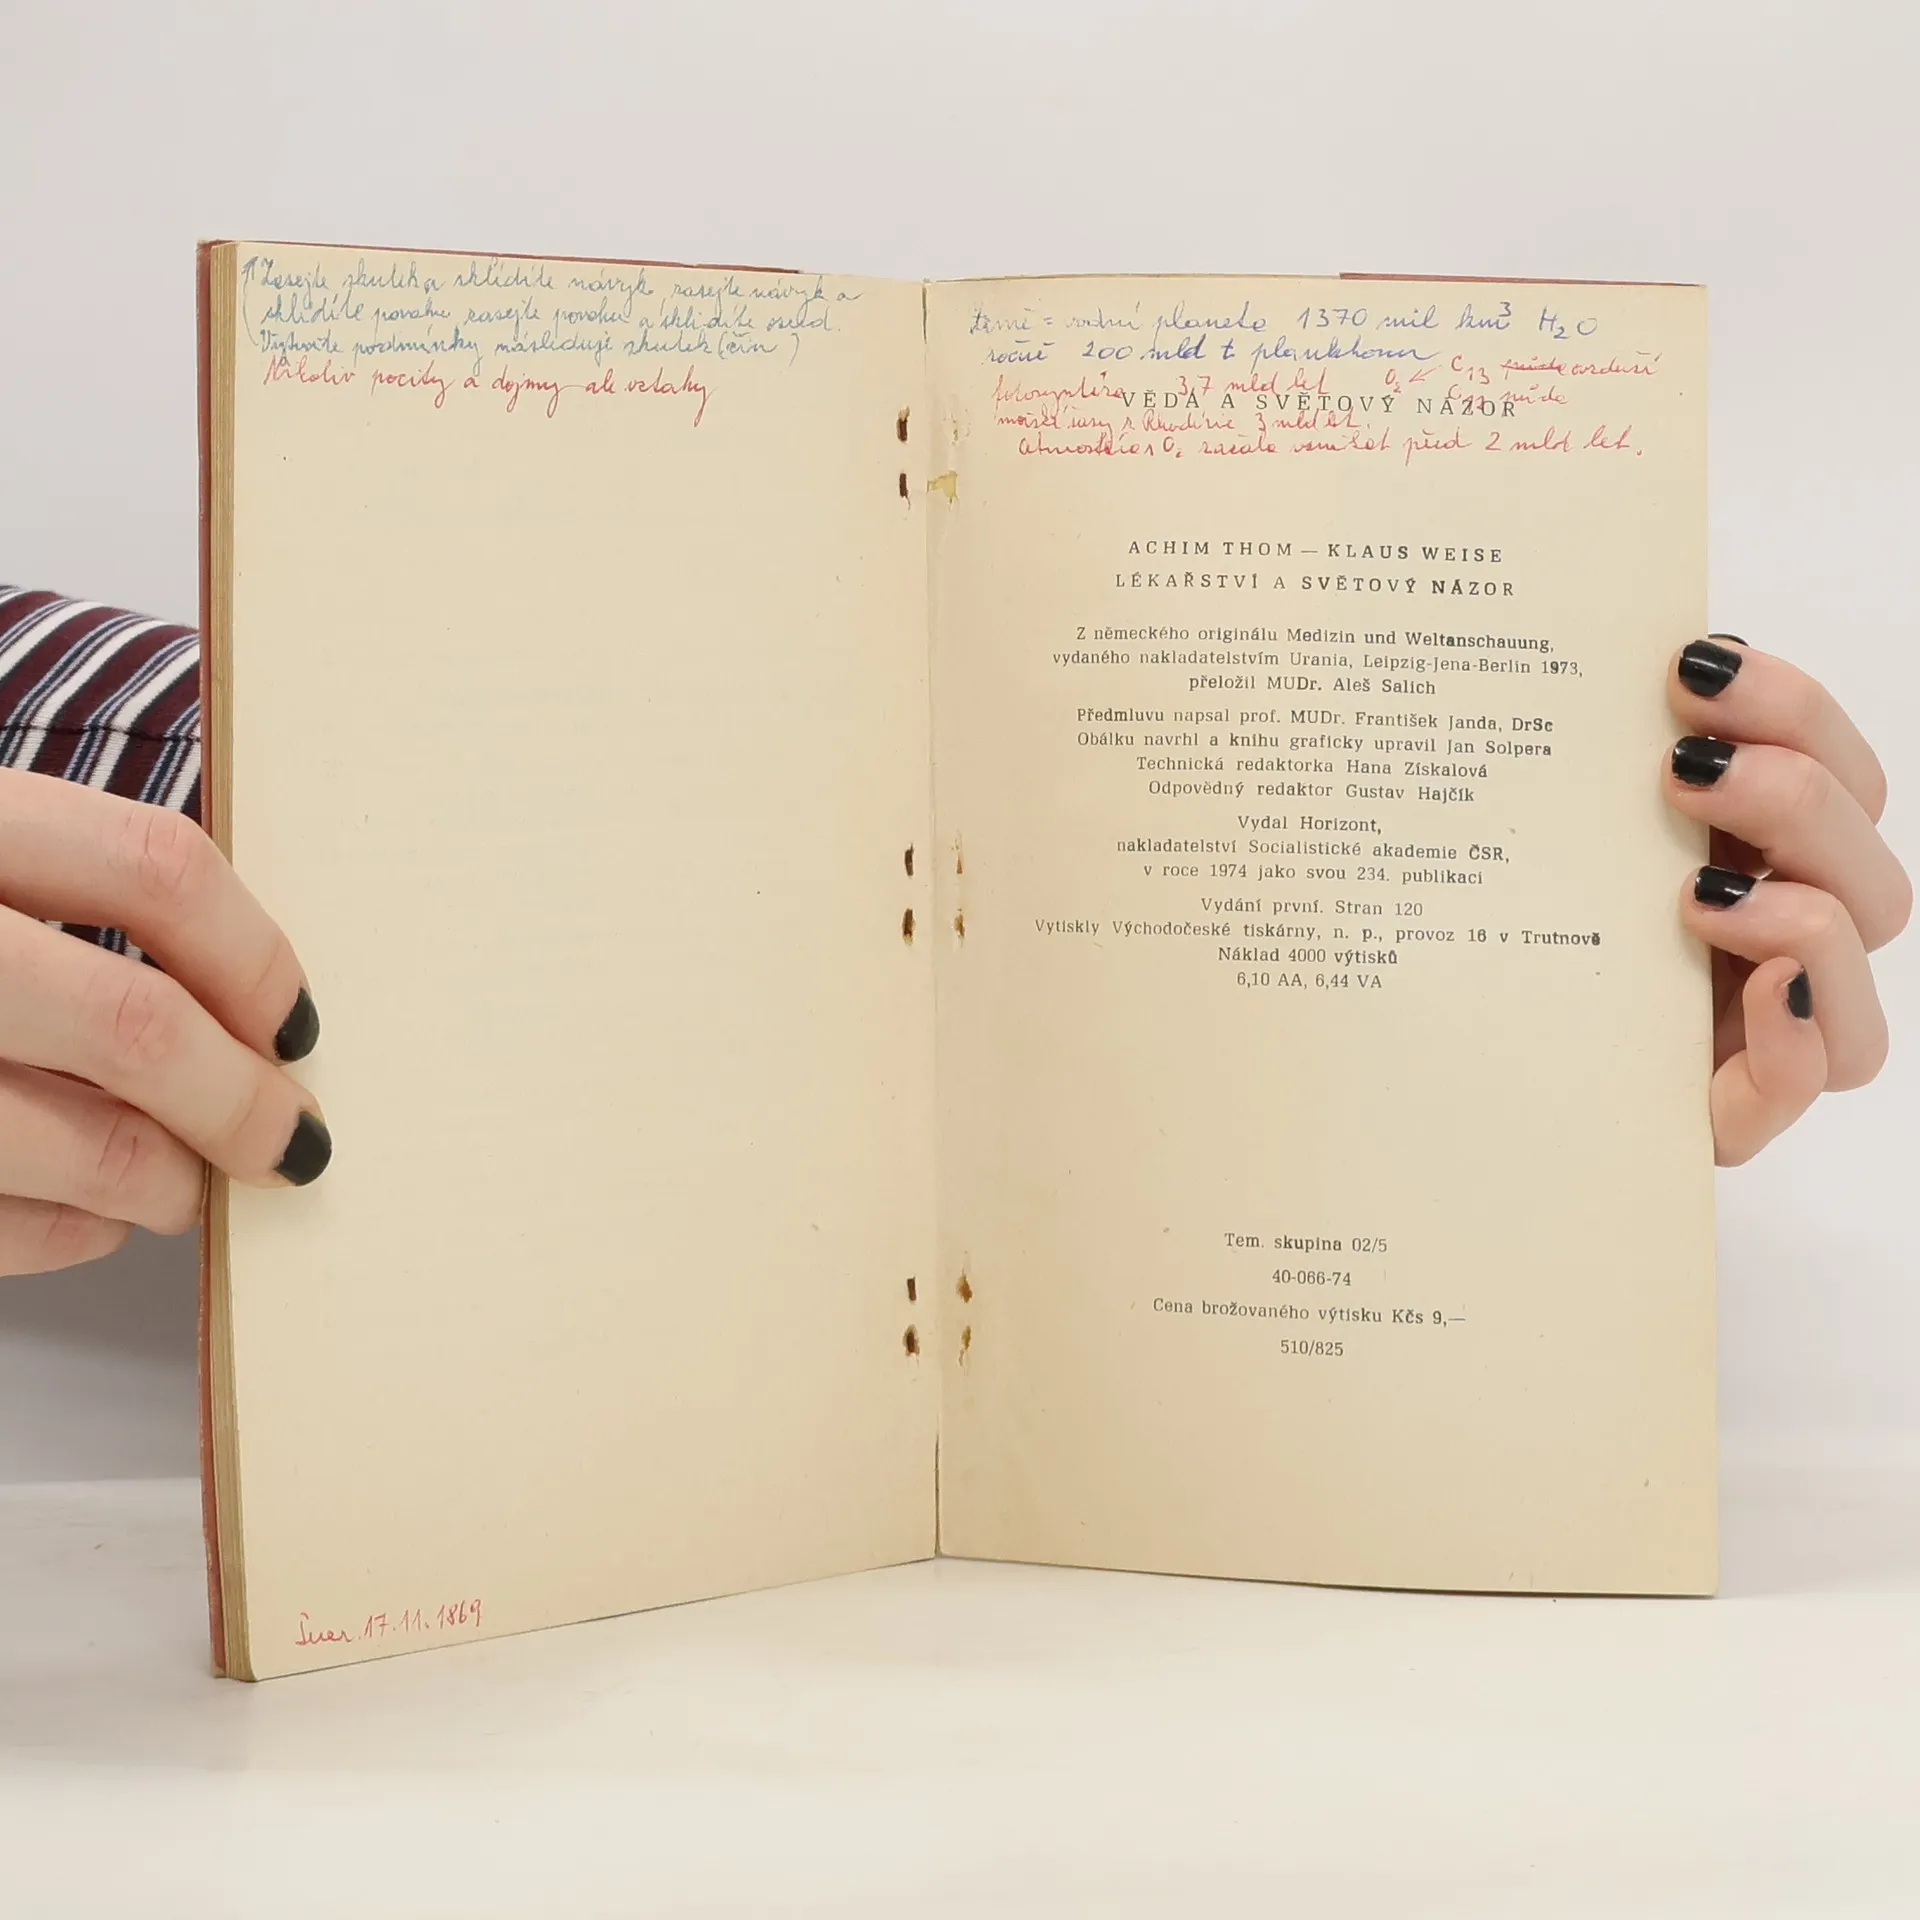 Zasejte skutek a sklidíte návyk, zasejte návyk a
sklidíte povahu zasejte povahu a sklidíte osud.
Vytvořte podmínky následuje skutek (čin)
Nikoliv pocity a dojmy ale vztahy
17.11.1869
Země = vodní planeta 1370 mil km³ H₂O
ročně 200 mld t planktonu
C₁₃ ovzduší
fotosyntéza 3,7 mld let O₂ ↙
půda
VĚDA A SVĚTOVÝ NÁZOR
mořské řasy z Rhodésie 3 mld let
O₂ začala vznikat před 2 mld let.
ACHIM THOM — KLAUS WEISE
LÉKAŘSTVÍ A SVĚTOVÝ NÁZOR
Z německého originálu Medizin und Weltanschauung,
vydaného nakladatelstvím Urania, Leipzig-Jena-Berlin 1973,
přeložil MUDr. Aleš Salich
Předmluvu napsal prof. MUDr. František Janda, DrSc
Obálku navrhl a knihu graficky upravil Jan Solpera
Technická redaktorka Hana Získalová
Odpovědný redaktor Gustav Hajčík
Vydal Horizont,
nakladatelství Socialistické akademie ČSR,
v roce 1974 jako svou 234. publikaci
Vydání první. Stran 120
Vytiskly Východočeské tiskárny, n. p., provoz 16 v Trutnově
Náklad 4000 výtisků
6,10 AA, 6,44 VA
Tem. skupina 02/5
40-066-74
Cena brožovaného výtisku Kčs 9,—
510/825